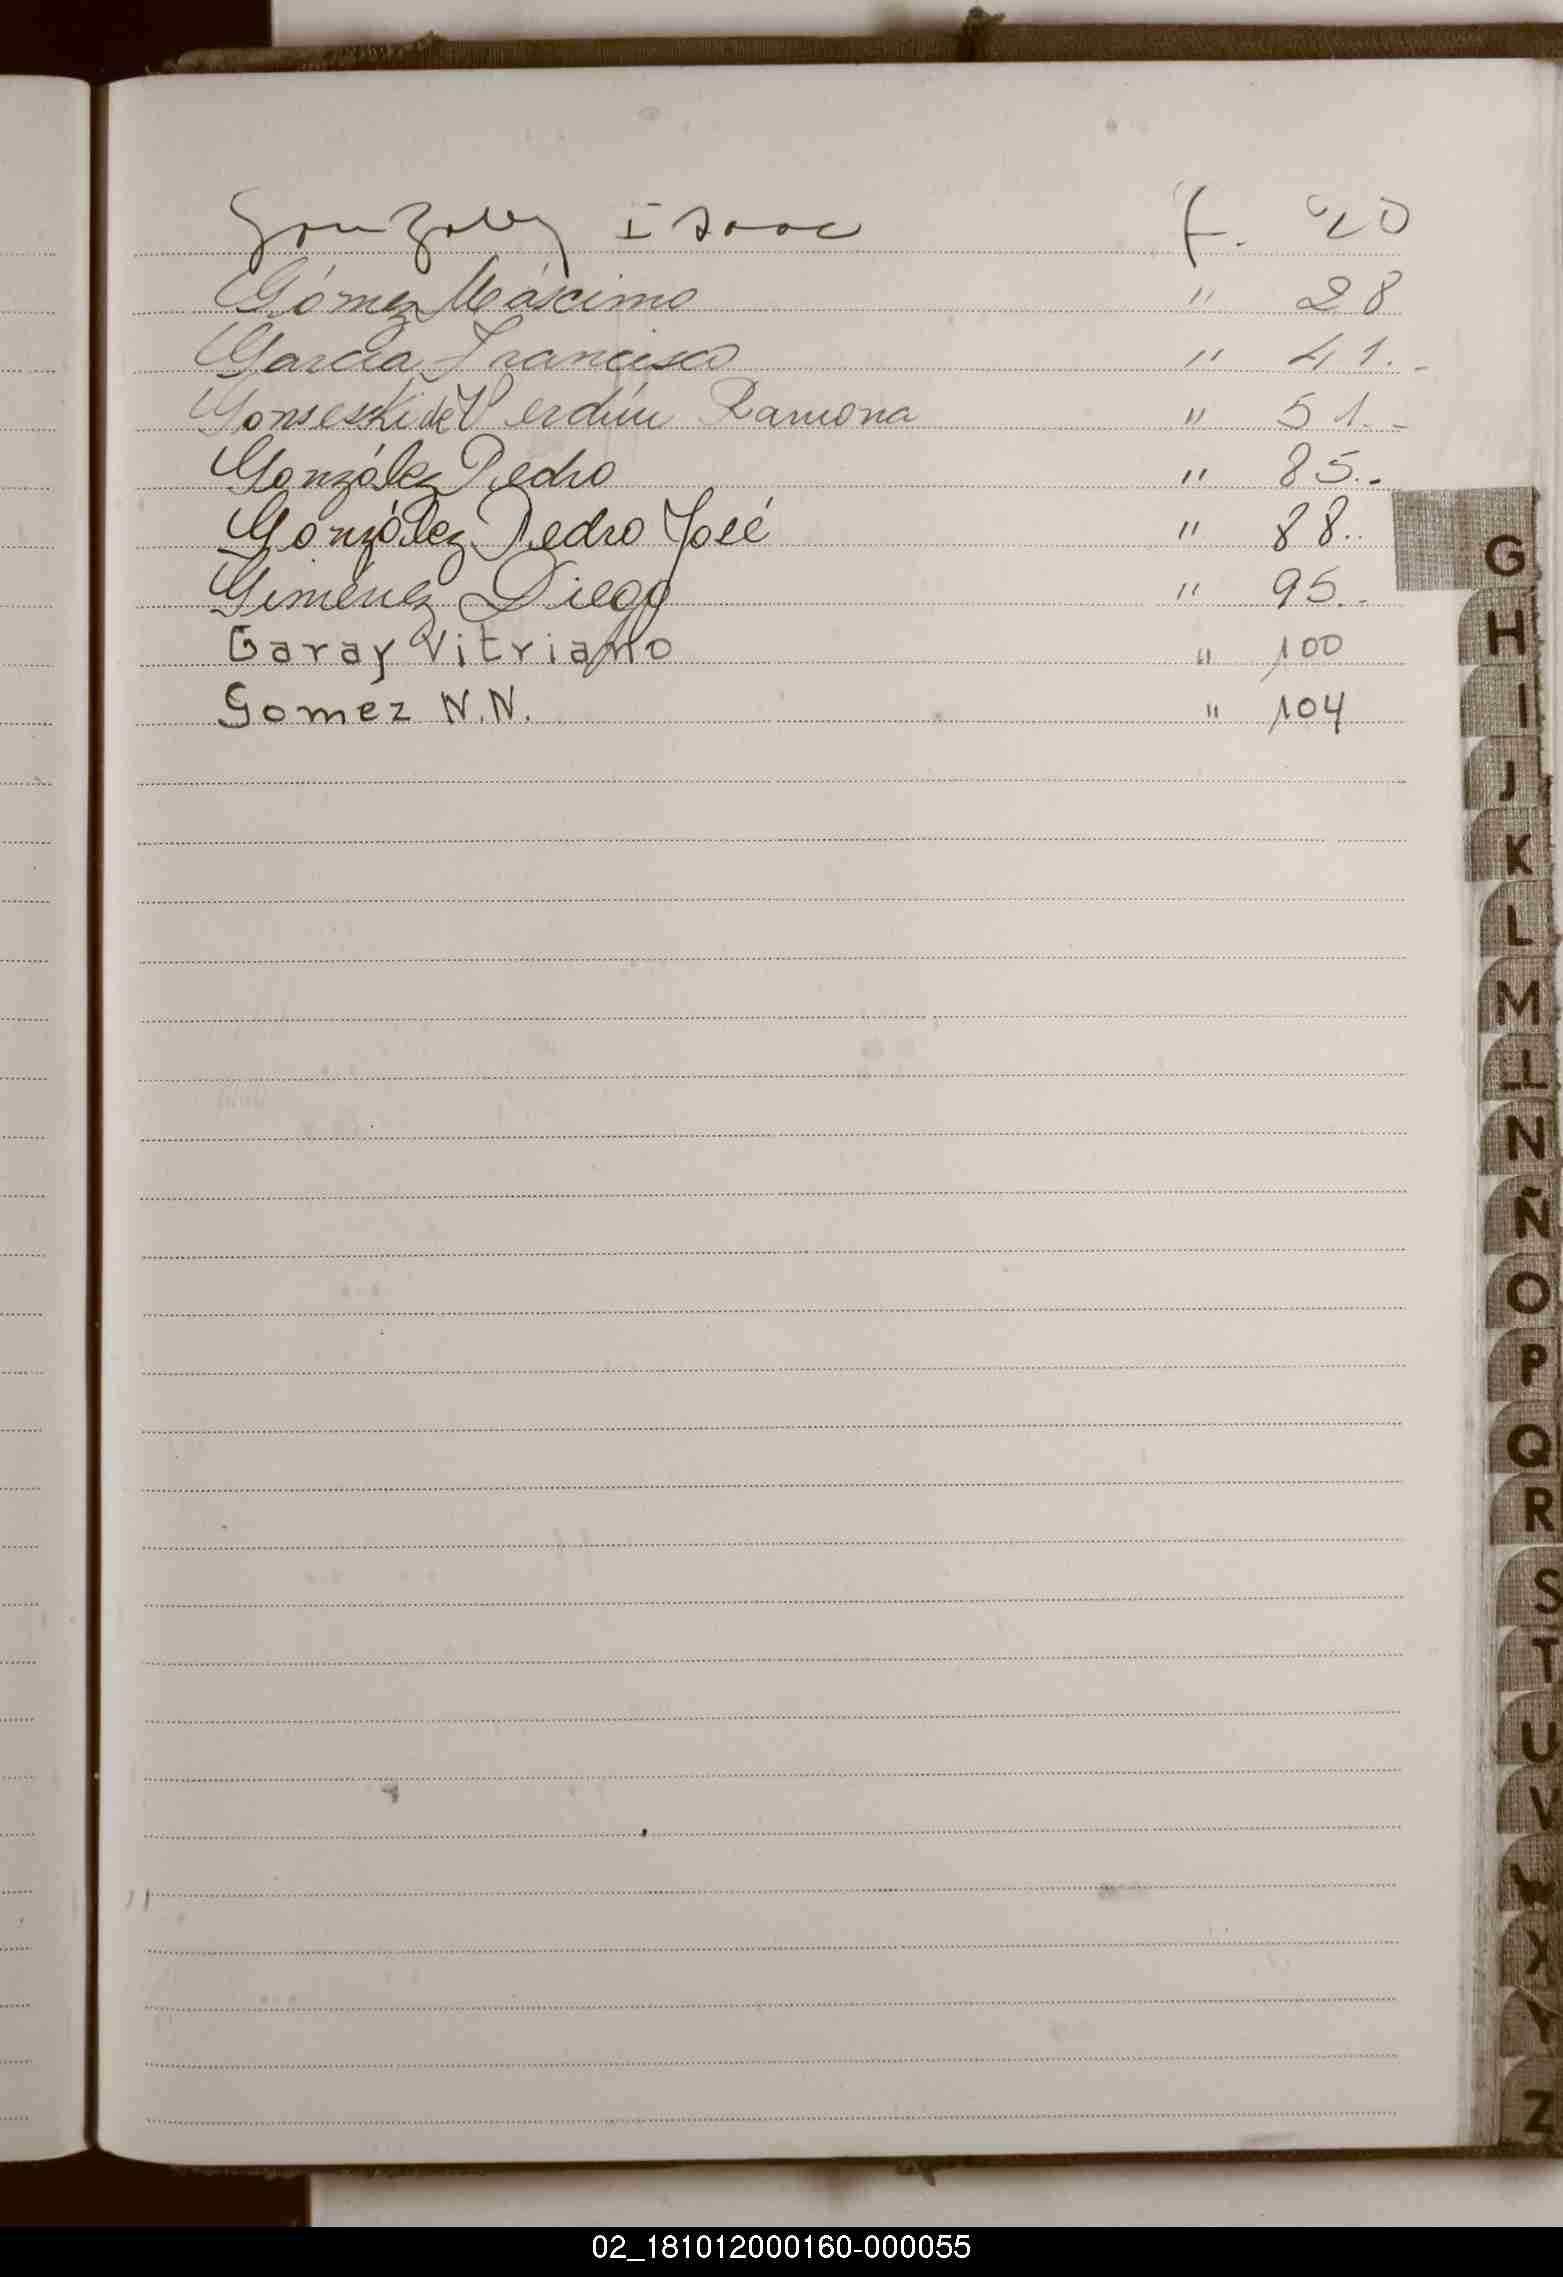 Gonzalez Isaac f. 20
Gómez Máscimo " 28
García Francisco " 41.-
Gonseski de Verdún Ramona " 51.-
González Pedro " 85.-
González Pedro José " 88..
Giménez Diego " 95.-
Garay Vitriano " 100
Gomez N.N. " 104
G
H
I
J
K
L
M
N
Ñ
O
P
Q
R
S
T
U
V
W
X
Y
Z
02_181012000160-000055